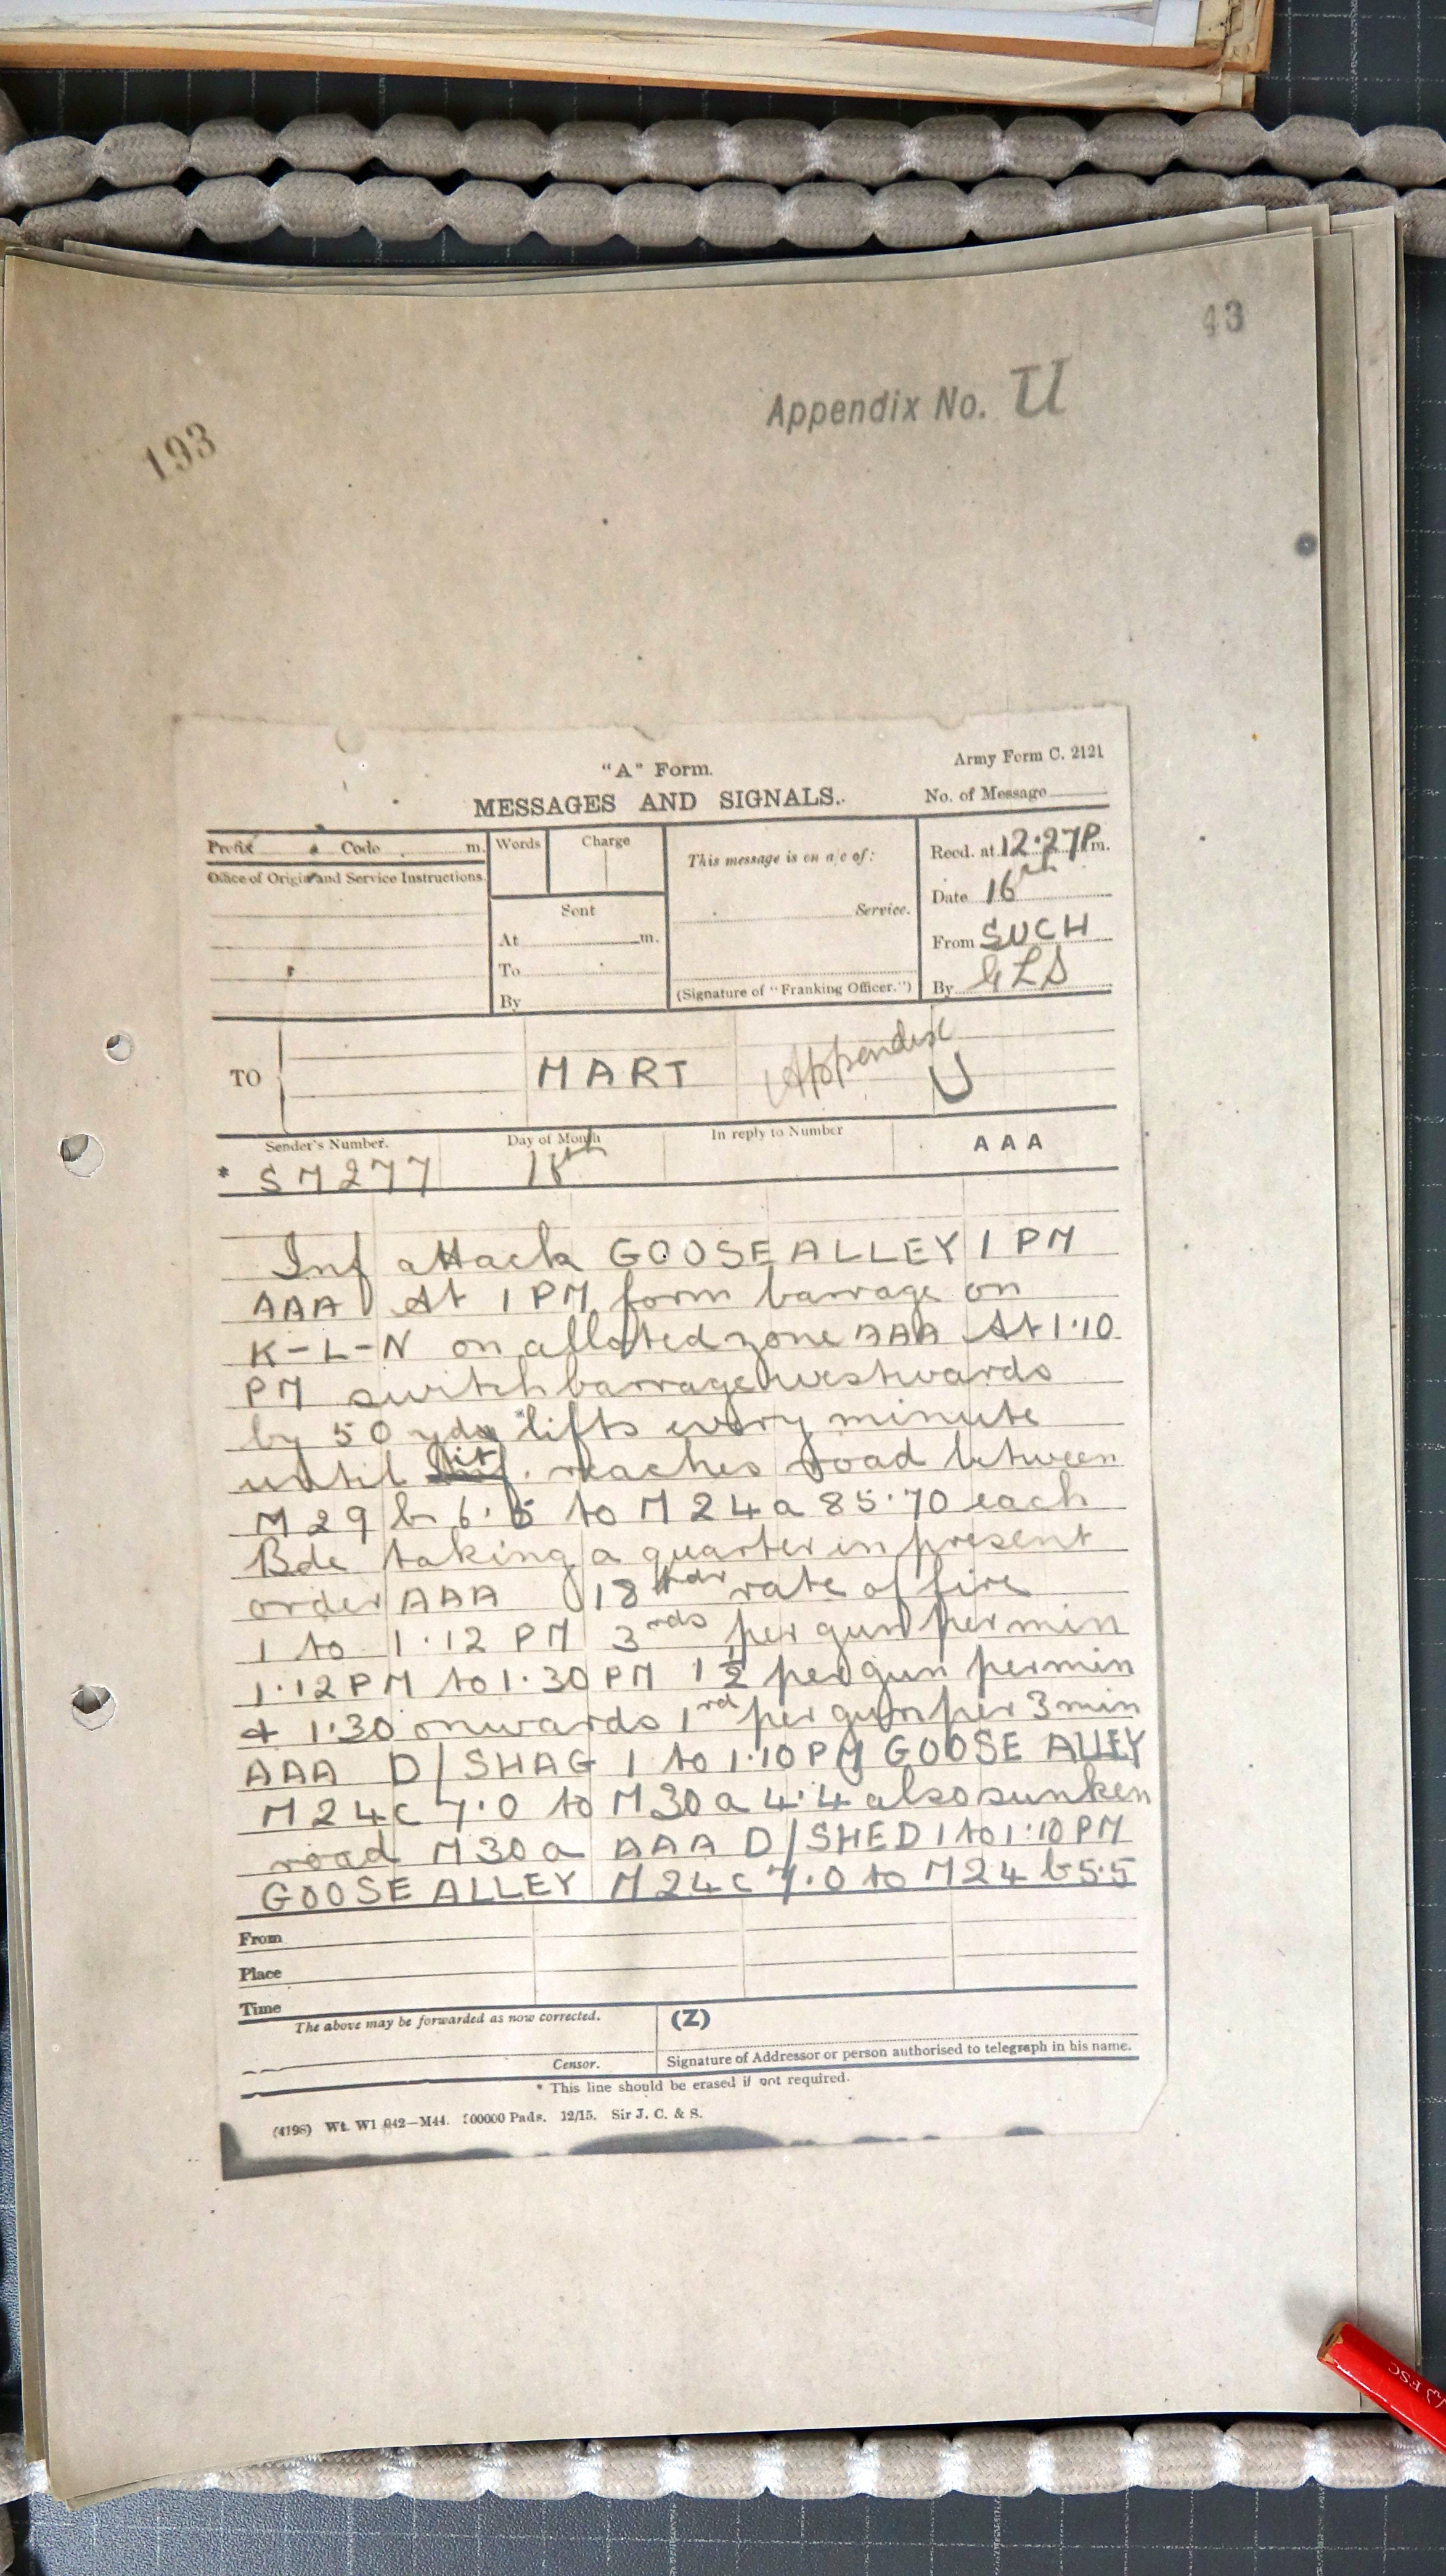 43
Appendix No. U
193
"A" Form.
Army Form C. 2121
MESSAGES AND SIGNALS.
No. of Message
Prefix Code m.
Words
Charge
This message is on a/c of:
Recd. at 12.27P m.
Office of Origin and Service Instructions.
Date 16th
Sent
Service.
At m.
From SUCH
To
By
(Signature of "Franking Officer.")
By
TO
MART
Appendix
U
Sender's Number.
Day of Month
In reply to Number
AAA
* SM277
Inf attack GOOSE ALLEY 1 PM
AAA At 1 PM form barrage on
K-L-N on alloted zone AAA At 1.10
PM switch barrage westwards
by 50 yds lifts every minute
until it reaches road between
M29 b 6.5 to M24a 85.70 each
Bde taking a quarter in present
order AAA 18 pdr rate of fire
1 to 1.12 PM 3 rds per gun per min
1.12PM to 1.30PM 1½ per gun per min
+ 1.30 onwards 1 rd per gun per 3 min
AAA D/SHAG 1 to 1.10PM GOOSE ALLEY
M24c 7.0 to M30a 4.4 also sunken
road M30a AAA D/SHED 1 to 1.10PM
GOOSE ALLEY M24c 7.0 to M24 b 5.5
From
Place
Time
The above may be forwarded as now corrected.
(Z)
Censor.
Signature of Addressor or person authorised to telegraph in his name.
* This line should be erased if not required.
(4198) Wt. W1 042—M44. 00000 Pads. 12/15. Sir J. C. & S.